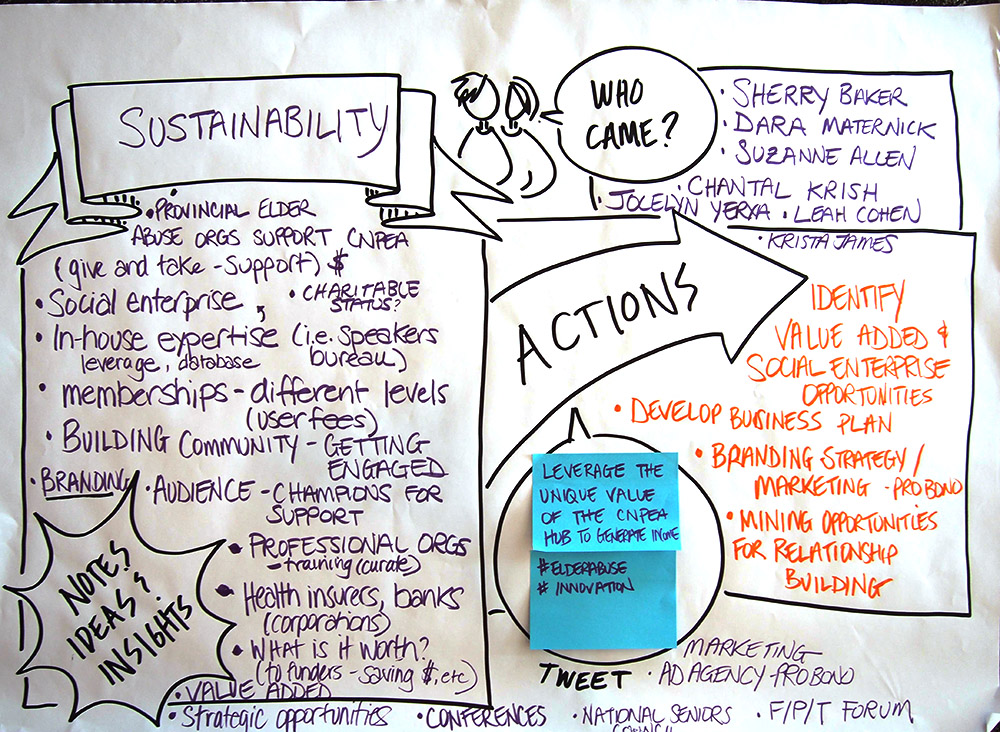 SUSTAINABILITY
WHO
CAME?
• SHERRY BAKER
• DARA MATERNICK
• SUZANNE ALLEN
• CHANTAL KRISH
• JOCELYN YERXA • LEAH COHEN
• KRISTA JAMES
• PROVINCIAL ELDER
ABUSE ORGS SUPPORT CNPEA
(give and take - Support) $
• Social enterprise
• CHARITABLE
STATUS?
• In-house expertise (i.e. Speakers
leverage, database bureau)
• memberships - different levels
(user fees)
• BUILDING COMMUNITY - GETTING
ENGAGED
• BRANDING
• AUDIENCE - CHAMPIONS FOR
SUPPORT
• PROFESSIONAL ORGS
- training (curate)
• Health insurers, banks
(corporations)
• WHAT IS IT WORTH?
(to funders - saving $, etc)
• VALUE ADDED
• Strategic opportunities • CONFERENCES • NATIONAL SENIORS • F/P/T FORUM
COUNCIL
NOTES
IDEAS &
INSIGHTS
ACTIONS
IDENTIFY
VALUE ADDED &
SOCIAL ENTERPRISE
OPPORTUNITIES
• DEVELOP BUSINESS PLAN
• BRANDING STRATEGY /
MARKETING - PRO BONO
• MINING OPPORTUNITIES
FOR RELATIONSHIP
BUILDING
LEVERAGE THE
UNIQUE VALUE
OF THE CNPEA
HUB TO GENERATE INCOME
#ELDERABUSE
# INNOVATION
TWEET
MARKETING
• AD AGENCY - PRO BONO